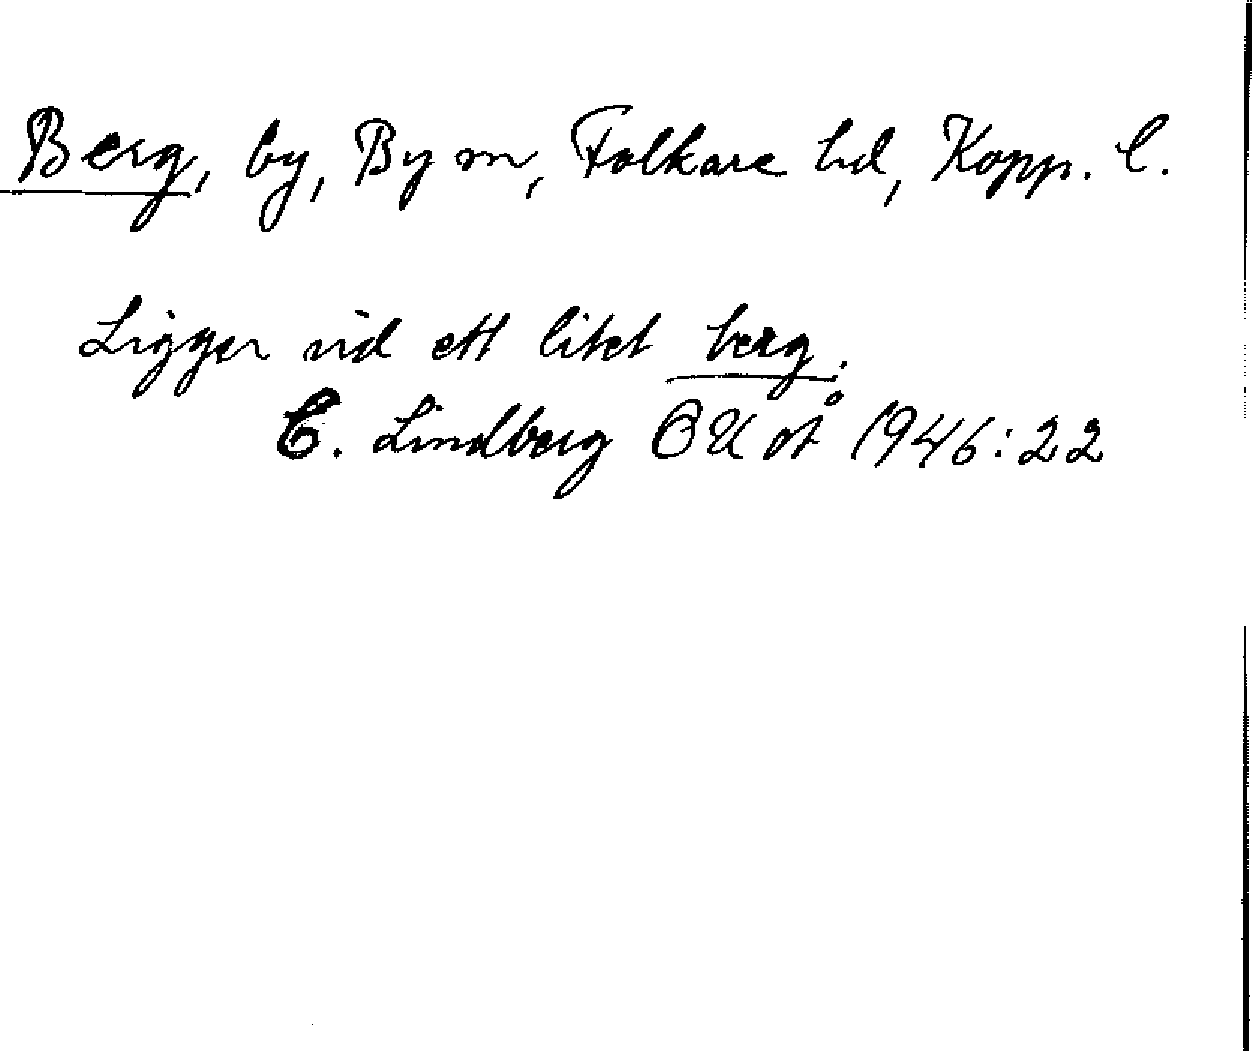 Berg, by, By sn, Folkare hd, Kopp. l.
Ligger vid ett litet berg.
C. Lindberg OUÅ 1946:22